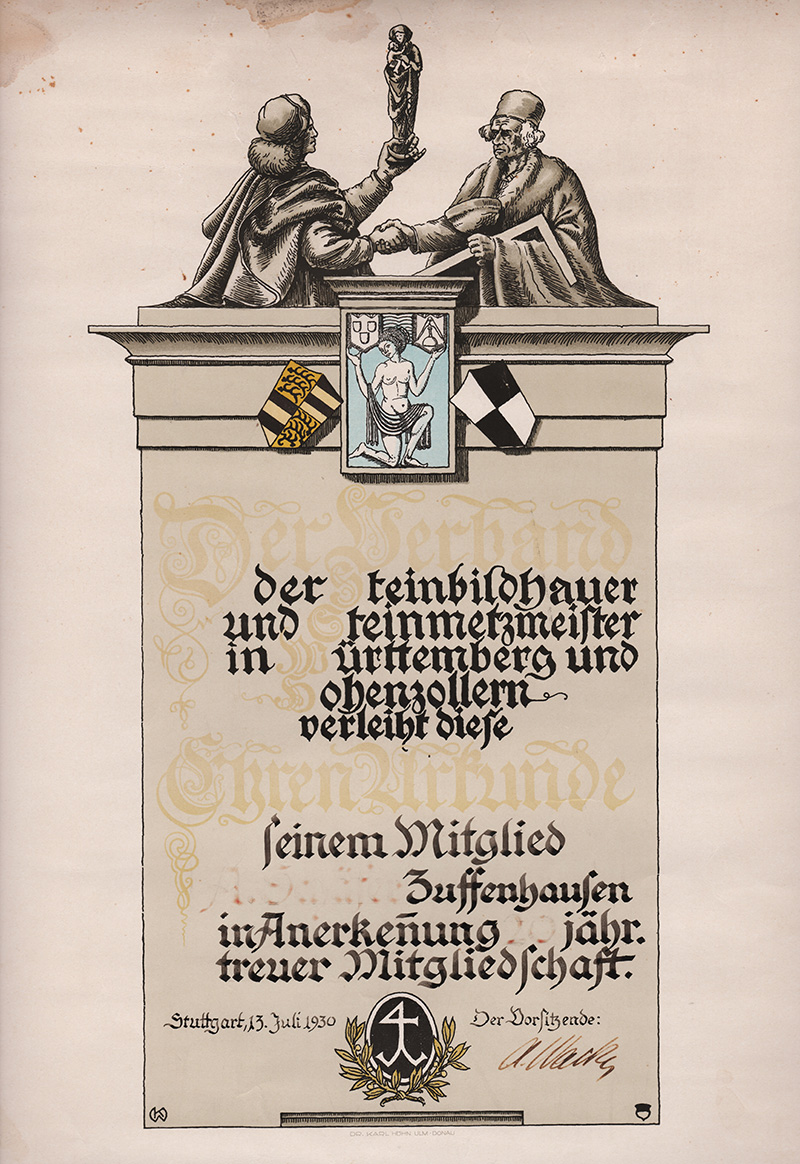 Der Verband
der Steinbildhauer
und Steinmetzmeister
in Württemberg und
Hohenzollern
verleiht diese
Ehren Urkunde
seinem Mitglied
A. Zuffenhausen
in Anerken̄ung 20 jähr.
treuer Mitgliedschaft.
Stuttgart, 13. Juli 1930
Der Vorsitzende:
DR. KARL HÖHN ULM-DONAU